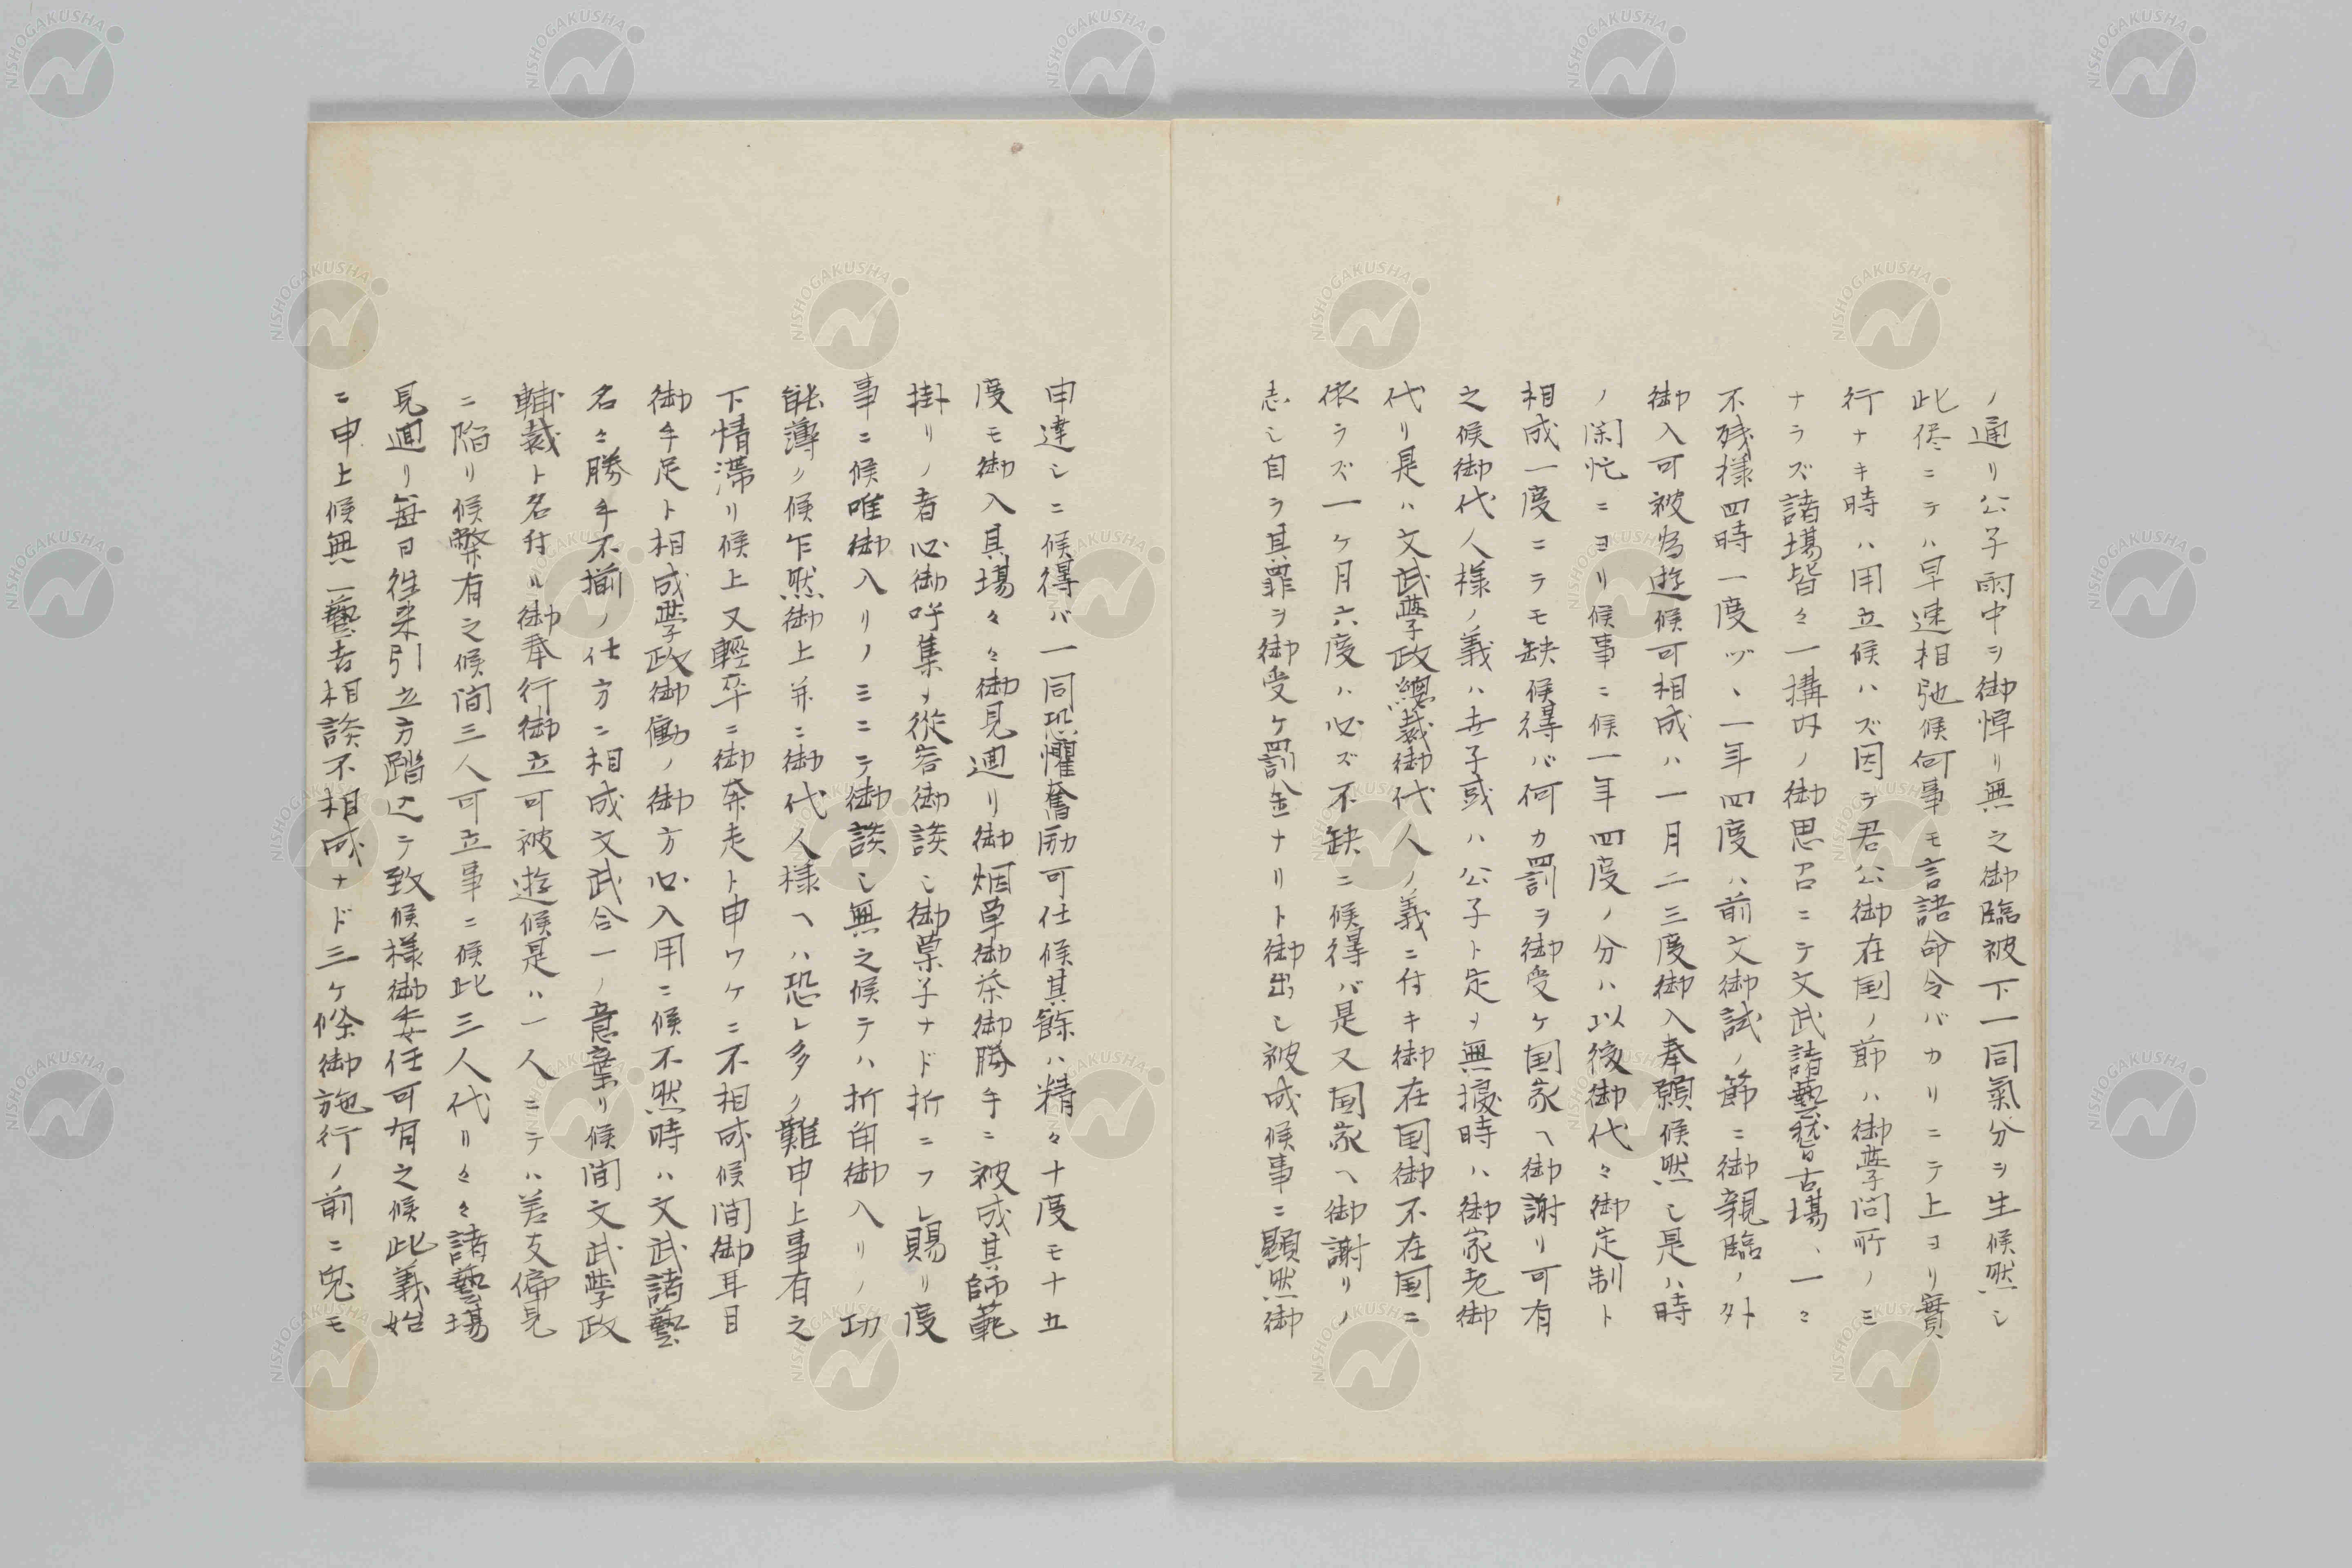 ノ通リ公子雨中ヲ御憚リ無之御臨被下一同氣分ヲ生候然シ
此侭ニテハ早速相弛候何事モ言語命令バカリニテ上ヨリ實
行ナキ時ハ用立候ハズ因テ君公御在国ノ節ハ御學問所ノミ
ナラズ諸場皆々一構内ノ御思召ニテ文武諸藝稽古場、一々
不残様四時一度ヅヽ一年四度ハ前文御試ノ節ニ御親臨ノ外
御入可被為遊候可相成ハ一月二三度御入奉願候然シ是ハ時
ノ閑忙ニヨリ候事ニ候一年四度ノ分ハ以後御代々御定制ト
相成一度ニテモ缺候得バ何カ罰ヲ御受ケ国家ヘ御謝リ可有
之候御代人様ノ義ハ世子或ハ公子ト定メ無據時ハ御家老御
代リ是ハ文武學政總裁御代人ノ義ニ付キ御在国御不在国ニ
依ラズ一ケ月六度ハ必ズ不缺ニ候得バ是又国家ヘ御謝リノ
志シ自ラ其罪ヲ御受ケ罰金ナリト御出シ被成候事ニ顯然御
申達シニ候得バ一同恐懼奮励可仕候其餘ハ精々十度モ十五
度モ御入其場々々御見廻リ御烟草御茶御勝手ニ被成其師範
掛リノ者必御呼集メ從容御談シ御菓子ナド折ニフレ賜リ度
事ニ候唯御入リノミニテ御談シ無之候テハ折角御入リノ功
能薄ク候乍然御上并ニ御代人様ヘハ恐レ多ク難申上事有之
下情滞リ候上又輕卒ニ御奔走ト申ワケニ不相成候間御耳目
御手足ト相成學政御働ノ御方必入用ニ候不然時ハ文武諸藝
名々勝手不揃ノ仕方ニ相成文武合一ノ意棄リ候間文武學政
輔裁ト名付ル御奉行御立可被遊候是ハ一人ニテハ差支偏見
ニ陥リ候弊有之候間三人可立事ニ候此三人代リ々々諸藝場
見廻リ毎日往来引立方踏込テ致候様御委任可有之候此義始
ニ申上候無一藝者相談不相成ナド三ケ條御施行ノ前ニ兎モ